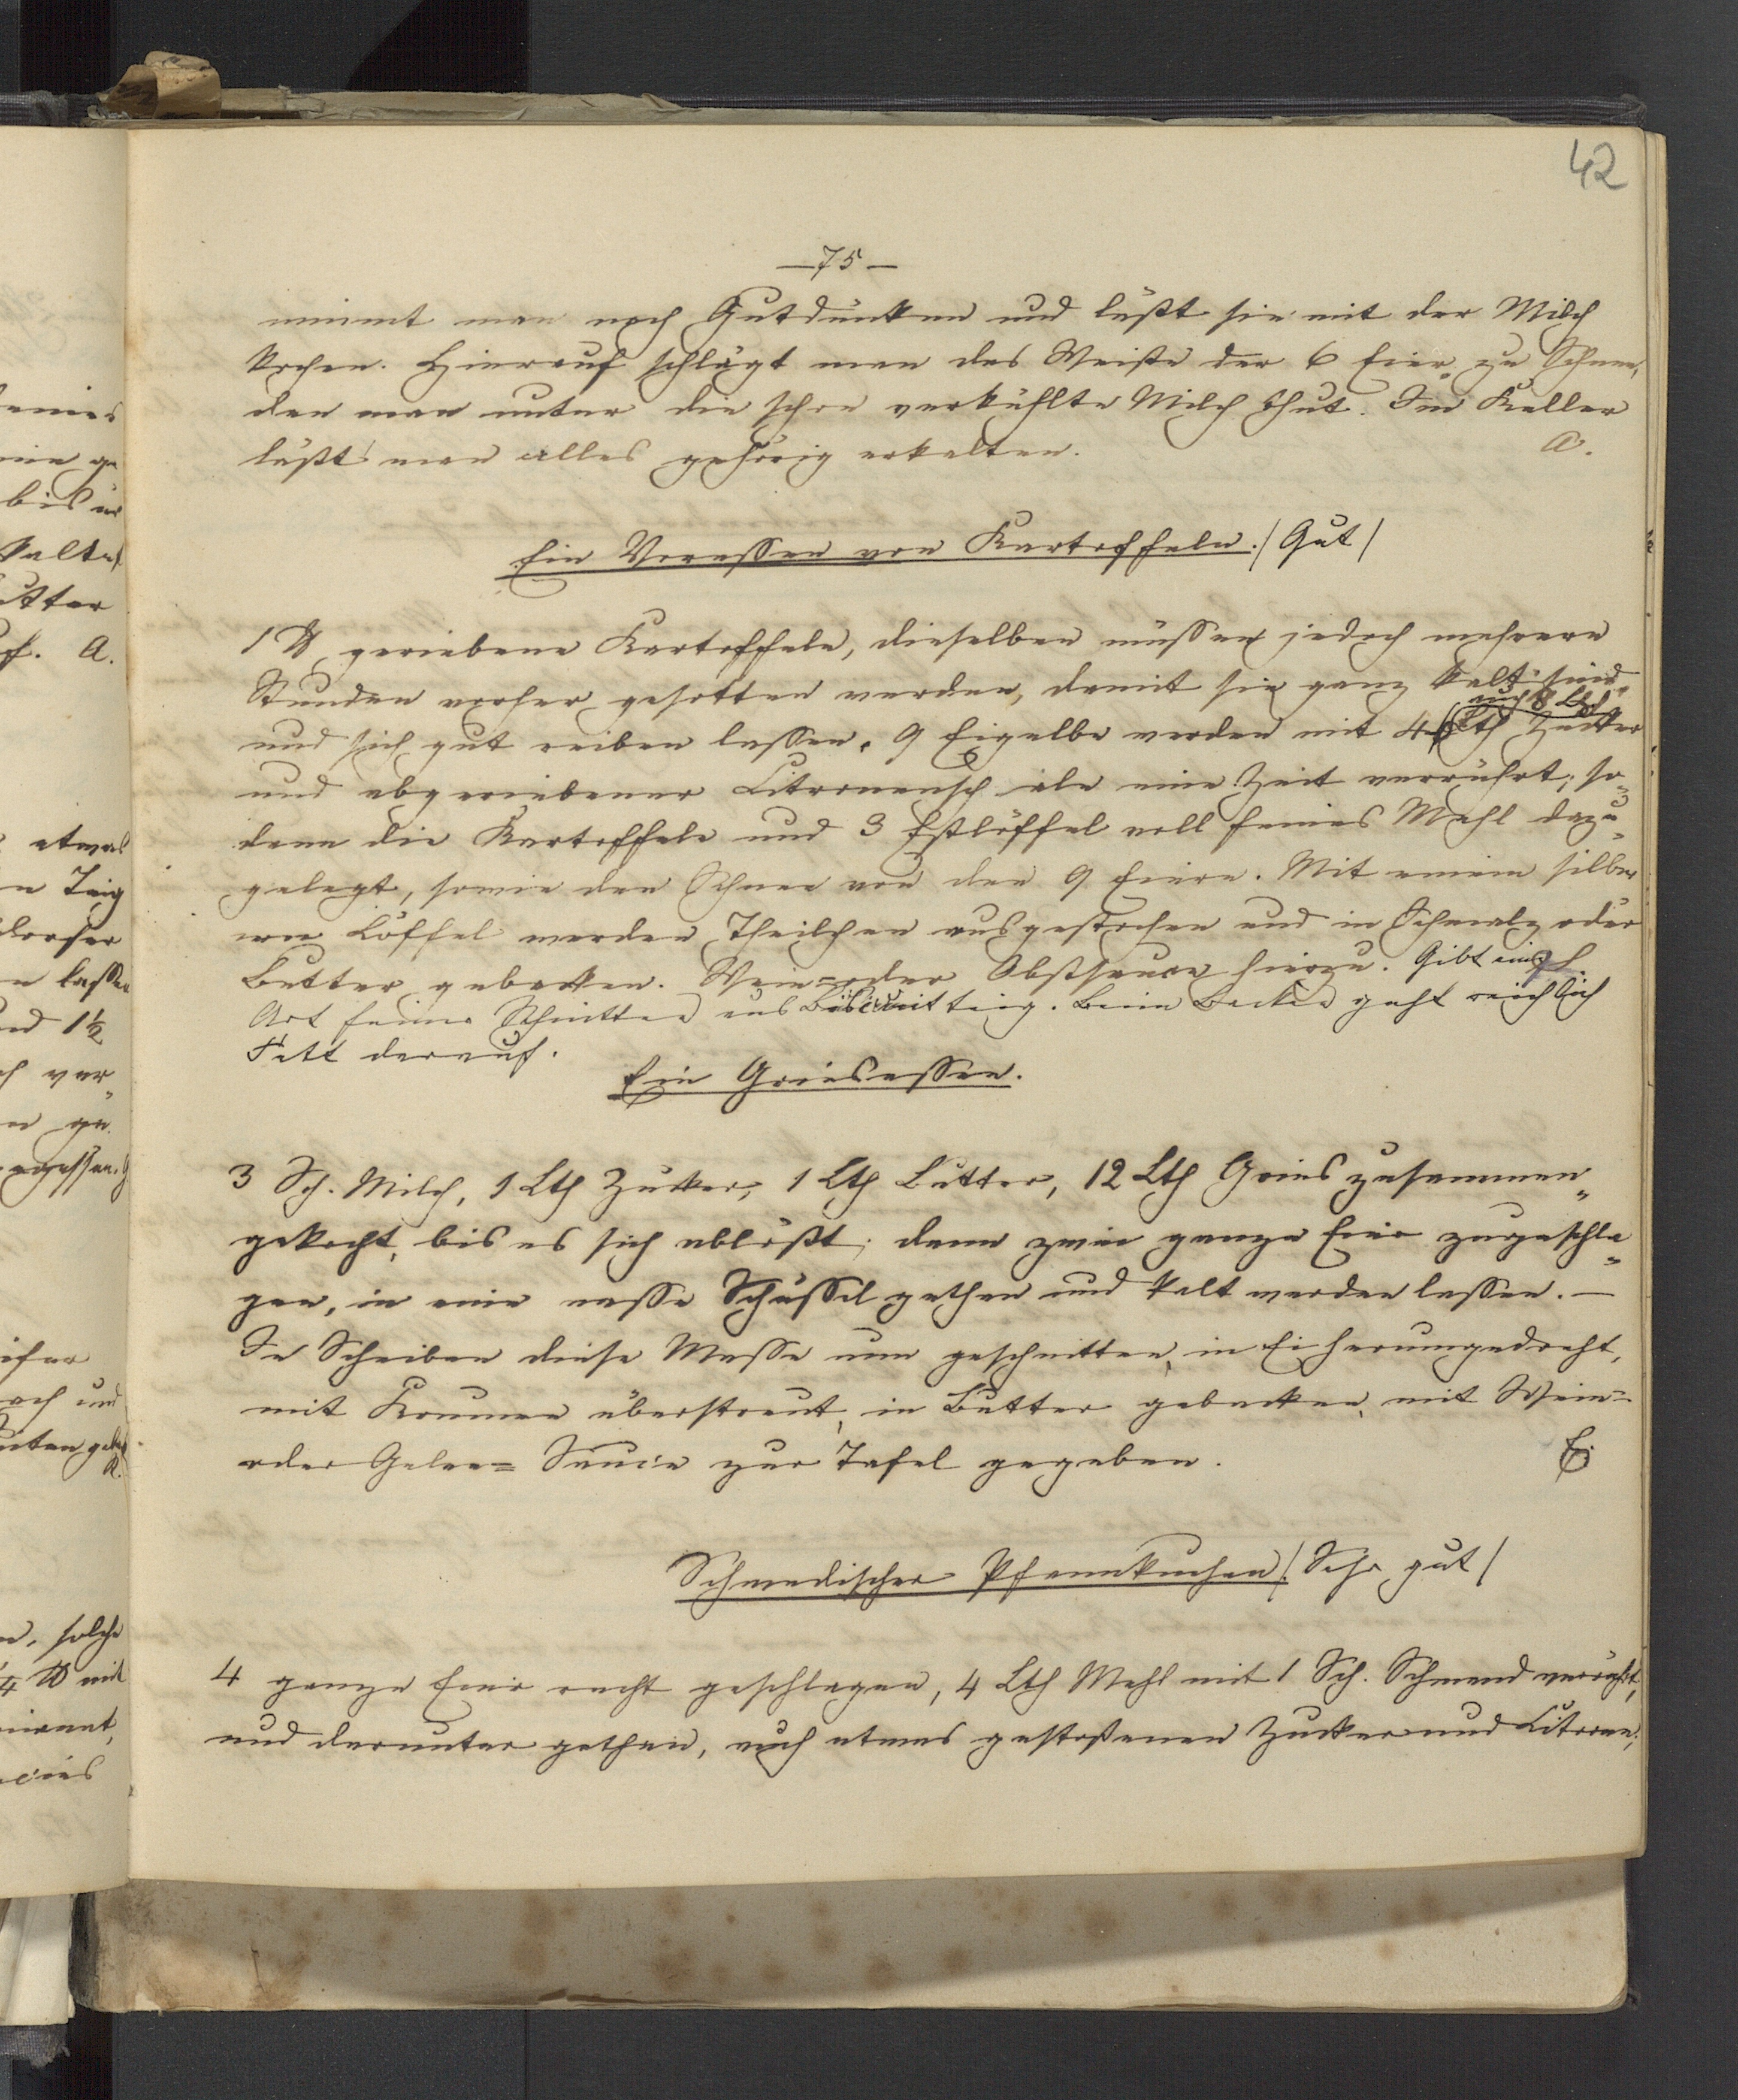 42
— 75 —
nimmt man nach Gutdünken und läßt sie mit der Milch
kochen. Hierauf schlägt man das Weiße der 6 Eier zu Schnee,
den man unter die schon verkühlte Milch thut. Im Keller
läßt man alles gehörig erkalten. A.
Ein Voressen von Kartoffeln. / Gut /
1 ℔ geriebene Kartoffeln, dieselben müssen jedoch mehrere
Stunden vorher gesotten werden, damit sie ganz kalt sind
auch 8 Lth
und sich gut reiben lassen. 9 Eigelbe werden mit 4 Lth Zucker
und abgeriebener Citronenschale eine Zeit verrührt; so-
dann die Kartoffeln und 3 Eßlöffel voll feines Mehl dazu
gelegt, sowie den Schnee von den 9 Eiern. Mit einem silber
nen Löffel werden Theilchen ausgestochen und in Schmalz oder
Butter gebacken. Wein- oder Obstsauce hierzu. Gibt eine
Art feine Schnitten aus Biscuitteig. Beim Backen geht reichlich
Fett darauf.
Ein Griesessen.
3 Sch. Milch, 1 Lth Zucker, 1 Lth Butter, 12 Lth Gries zusammen„
gekocht, bis es sich ablößt; dann zwei ganze Eier zugeschla„
gen, in eine nasse Schüssel gethan und kalt werden lassen. —
In Scheiben diese Masse nun geschnitten, in Ei herumgedreht,
mit Krumen überstreut, in Butter gebacken, mit Wein-
oder Gelee= Sauce zur Tafel gegeben.
Schwedischer Pfannkuchen / Sehr gut /
4 ganze Eier recht geschlagen, 4 Lth Mehl mit 1 Sch. Schmand verrührt,
und darunter gethan, auch etwas gestoßenen Zucker und Citrone;